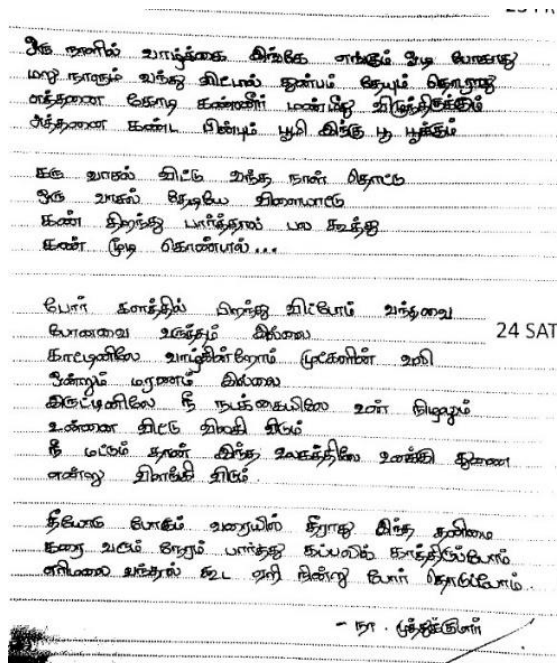 ஒரு நாளில் வாழ்க்கை இங்கே எங்கும் ஓடி போகாது
மறு நாளும் வந்து விட்டால் துன்பம் தேயும் தொடராது
எத்தனை கோடி கண்ணீர் மண்மீது விழுந்திருக்கும்
அத்தனை கண்ட பின்பும் பூமி இங்கு பூ பூக்கும்
கரு வாசல் விட்டு வந்த நாள் தொட்டு
ஒரு வாசல் தேடியே விளையாட்டு
கண் திறந்து பார்த்தால் பல கூத்து
கண் மூடி கொண்டால்...
போர் களத்தில் பிறந்து விட்டோம் வந்தவை
போனவை வருத்தம் இல்லை
24 SAT
காட்டினிலே வாழ்கின்றோம் முட்களின் வலி
ஒன்றும் மரணம் இல்லை
இருட்டினிலே நீ நடக்கையிலே உன் நிழலும்
உன்னை விட்டு விலகி விடும்
நீ மட்டும் தான் இந்த உலகத்திலே உனக்கு துணை
என்று விளங்கி விடும்
தீயோடு போகும் வரையில் தீராது இந்த தனிமை
கரை வரும் நேரம் பார்த்து கப்பலில் காத்திருப்போம்
எரிமலை வந்தால் கூட ஏறி நின்று போர் தொடுப்போம்
- நா. முத்துக்குமார்